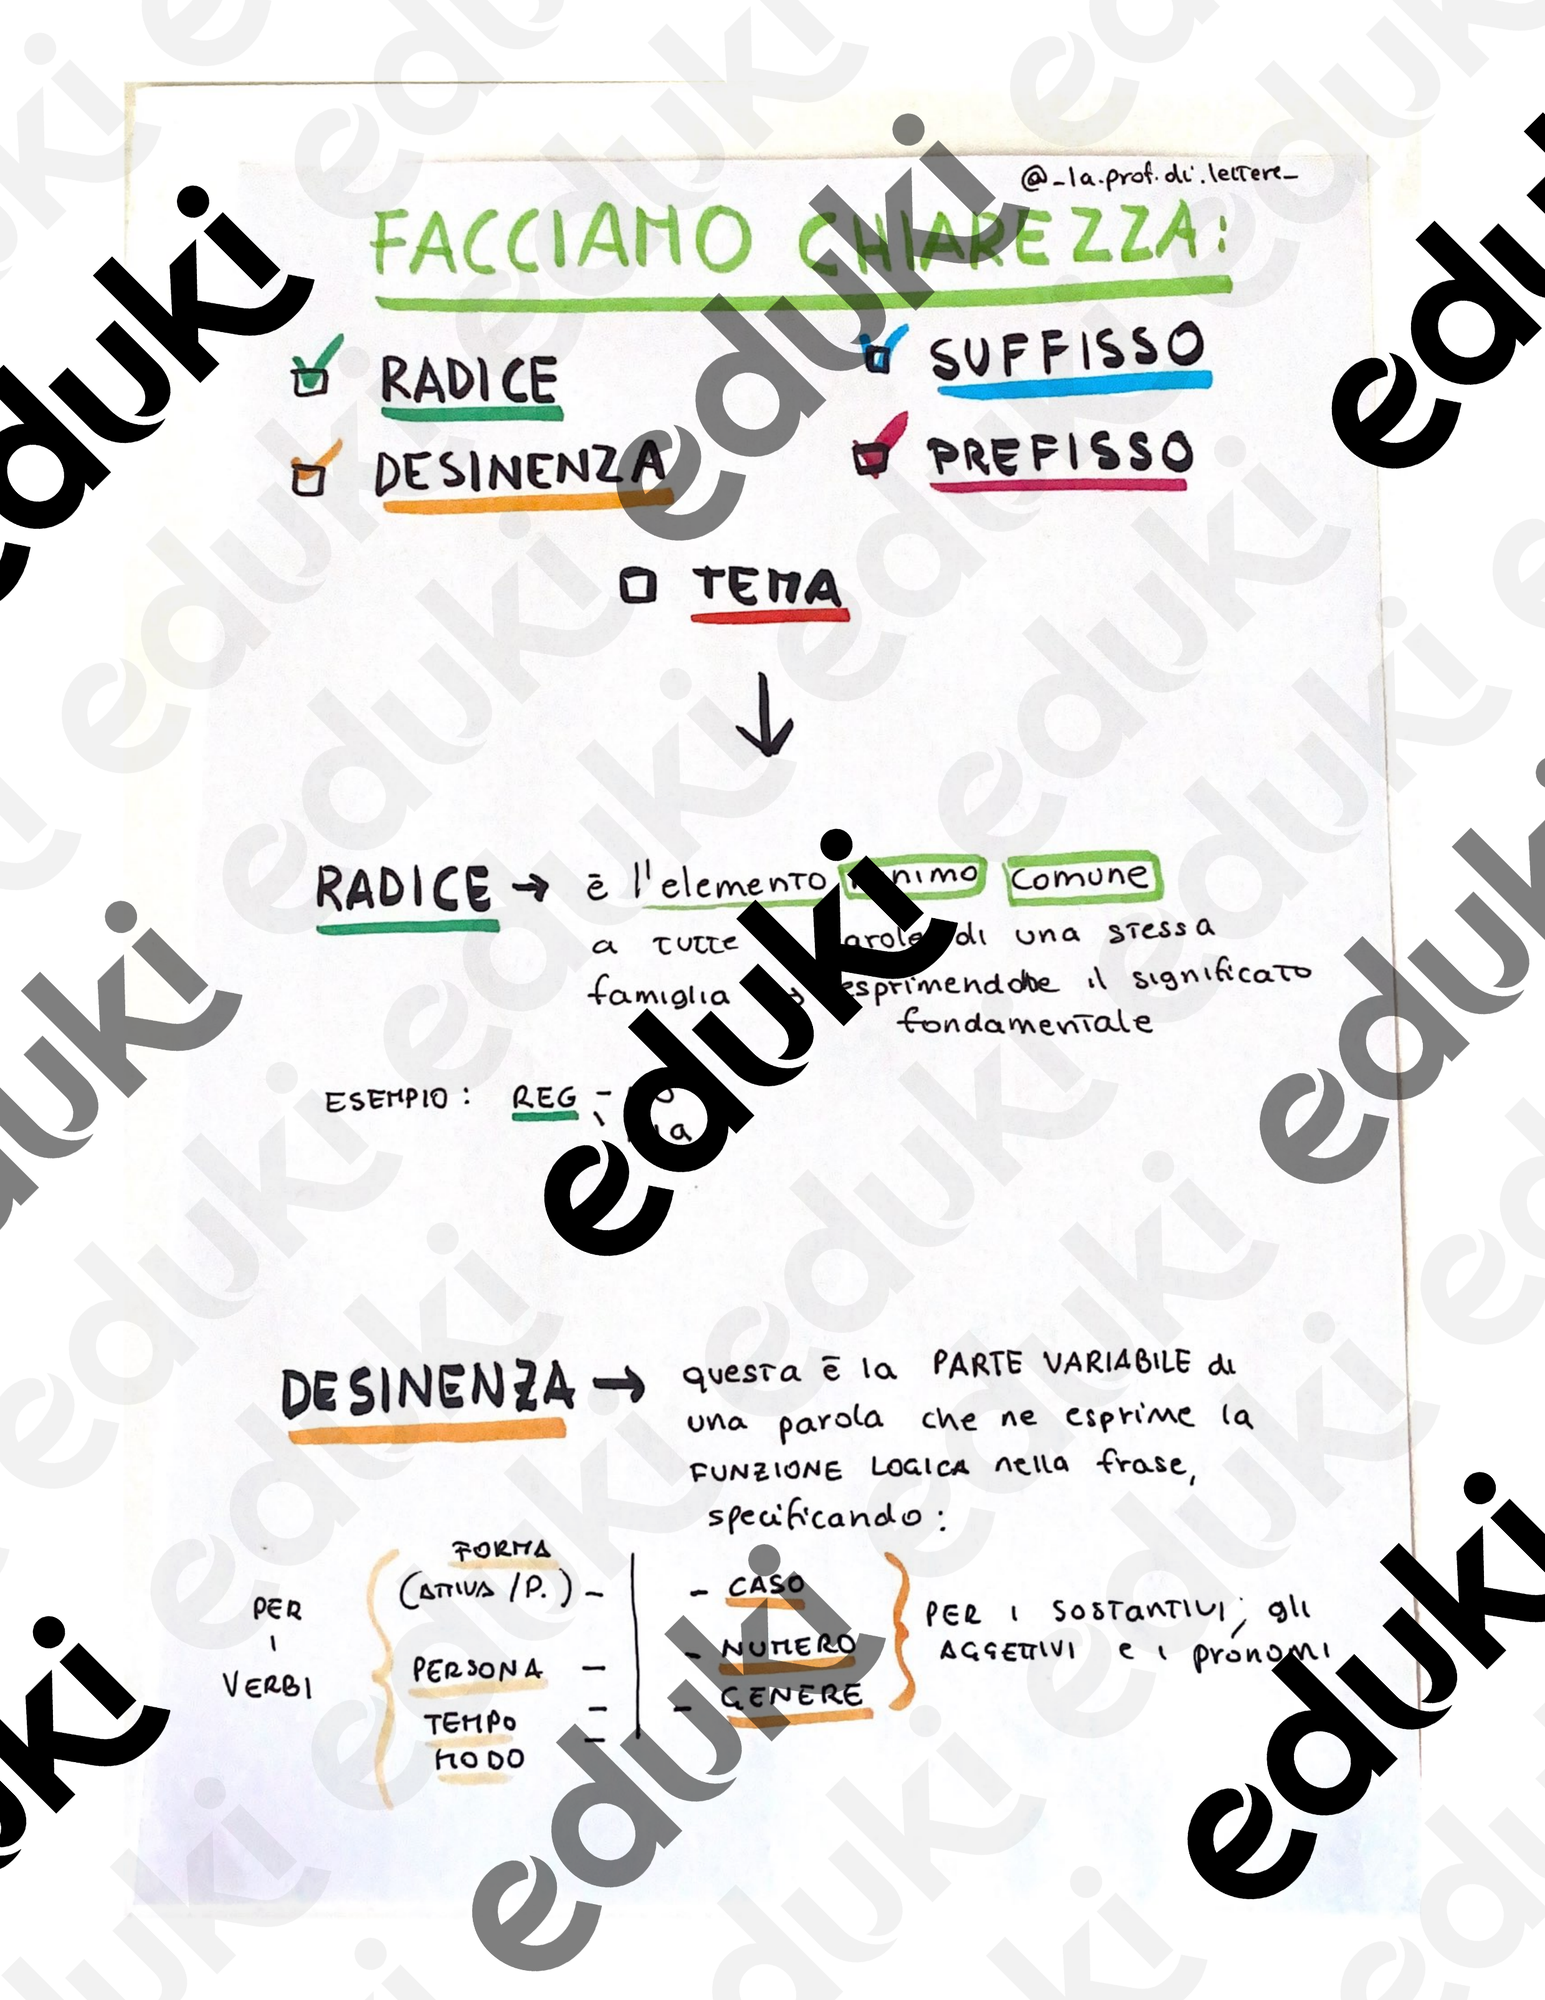 @_la.prof.di.lettere_
FACCIAMO CHIAREZZA:
RADICE
SUFFISSO
DESINENZA
PREFISSO
TEMA
RADICE → è l'elemento minimo comune
a tutte parole di una stessa
famiglia → esprimendone il significato
fondamentale
ESEMPIO: REG -
DESINENZA → questa è la PARTE VARIABILE di
una parola che ne esprime la
FUNZIONE LOGICA nella frase,
specificando:
PER
I
VERBI
FORMA
(ATTIVA/P.) -
PERSONA -
TEMPO -
MODO -
- CASO
- NUMERO
- GENERE
PER I SOSTANTIVI, gli
AGGETTIVI e i pronomi
eduki
eduki
eduki
eduki
eduki
eduki
eduki
eduki
eduki